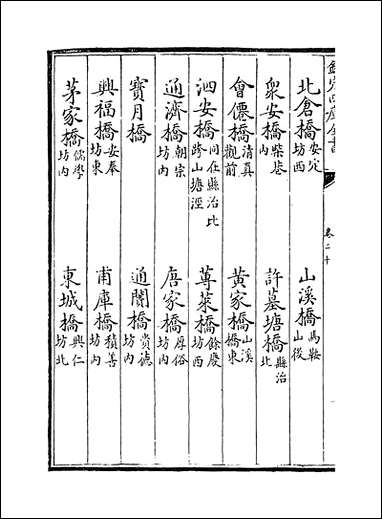 欽定四庫全書
卷二十
北倉橋安定坊西 山溪橋馬鞍山後
眾安橋柴巷內 許墓塘橋縣治北
會僊橋清真觀前 黃家橋山溪橋東
泗安橋同在縣治北跨山塘涇 蓴菜橋餘慶坊西
通濟橋朝宗坊內 唐家橋厚俗坊內
寶月橋 通闤橋賞德坊內
興福橋安奉坊東 甫庫橋積善坊內
茅家橋儒學坊內 東城橋興仁坊北